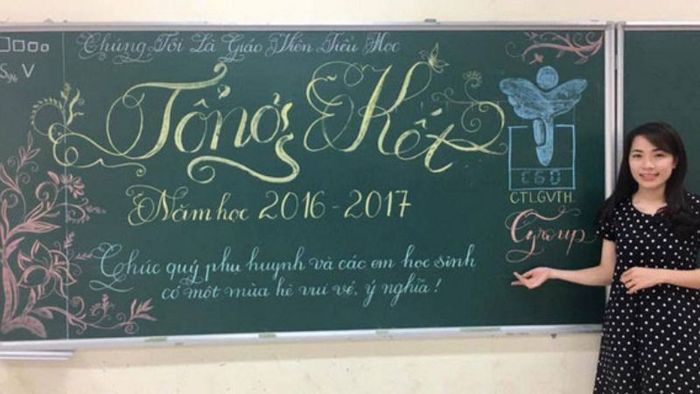 Chúng Tôi Là Giáo Viên Tiểu Học
Sỹ V
Tổng Kết
Năm học 2016 - 2017
Chúc quý phụ huynh và các em học sinh
có một mùa hè vui vẻ, ý nghĩa !
CGD
CTLGVTH
Group